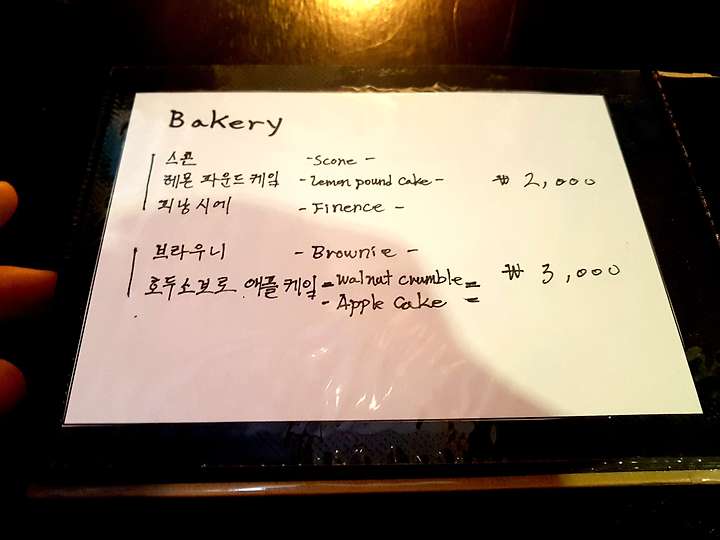 Bakery
스콘 - Scone -
레몬 파운드케잌 - lemon pound cake - ₩ 2,000
피낭시에 - Finence -
브라우니 - Brownie -
호두소보로 애플케잌 = walnut crumble = ₩ 3,000
- Apple cake =